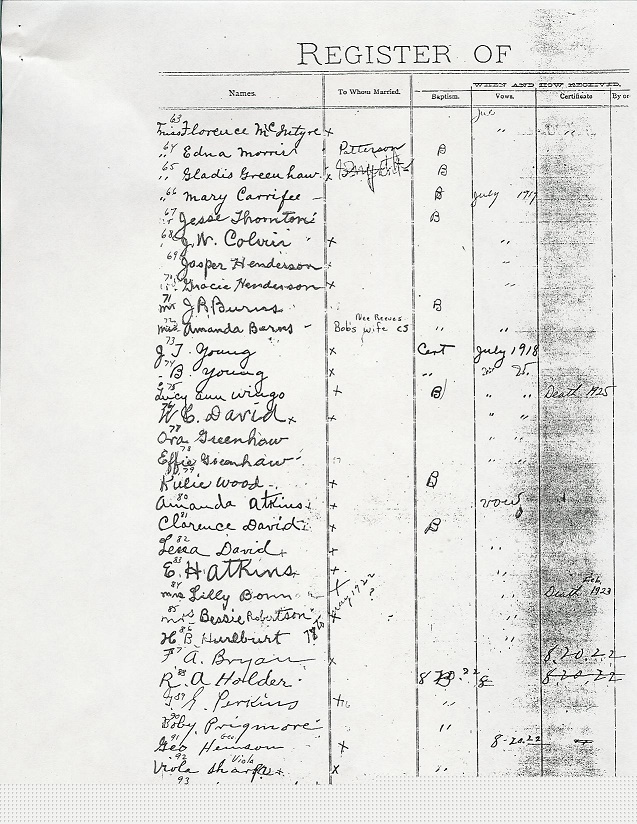 REGISTER OF
WHEN AND HOW RECEIVED.
Names. To Whom Married. Baptism. Vows. Certificate By or
63 Jul
Miss Florence McIntyre x " "
64 " Edna Morris Patterson B
65 " Gladis Greenhaw x B
66 " Mary Carrifee - B July 1917
67 Jesse Thornton B
68 J. W. Colvin x "
69 Jasper Henderson
70 Gracie Henderson x "
71 Mr J R Burns B
Nee Reeves
72 Miss Amanda Barns - Bob's wife CS " "
73 J T. Young x Cert July 1918
74 - B Young x " " 25
75 Lucy ann wingo + B " " Death 1925
W. C. David x + " "
78 Ora Greenhaw " "
78 Effie Greenhaw " "
79 Kulie Wood - + B
80 Amanda Atkins x + vows
81 Clarence David x + B
82 Lessa David x + "
83 E. H Atkins x + " Feb
84 Mrs Lilly Bonn + may 1922 ? Death 1923
85 Mrs Bessie Robertson x "
86 H B Hurlburt 78 to "
87 F A. Bryan x 8.20.22
88 R. A Holder 8 20.22 8 8.20.22
89 L. Perkins "
90 Boby Prigmore "
91 Geo Henson Geo. x 8-20.22
92 Viola Sharp x Viola x "
93